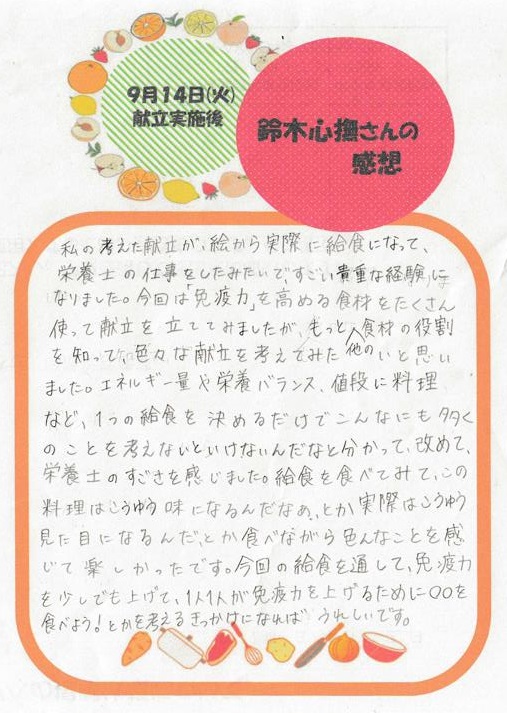 9月14日(火)
献立実施後
鈴木心撫さんの
感想
私の考えた献立が、絵から実際に給食になって、
栄養士の仕事をしたみたいで、すごい貴重な経験に
なりました。今回は「免疫力」を高める食材をたくさん
使って献立を立ててみましたが、もっと他の食材の役割
を知って、色々な献立を考えてみたいと思い
ました。エネルギー量や栄養バランス、値段に料理
など、1つの給食を決めるだけでこんなにも多く
のことを考えないといけないんだなと分かって、改めて、
栄養士のすごさを感じました。給食を食べてみて、この
料理はこうゆう味になるんだなぁ、とか実際はこうゆう
見た目になるんだ、とか食べながら色んなことを感
じて楽しかったです。今回の給食を通して、免疫力
を少しでも上げて、1人1人が免疫力を上げるために〇〇を
食べよう!とかを考えるきっかけになれば うれしいです。